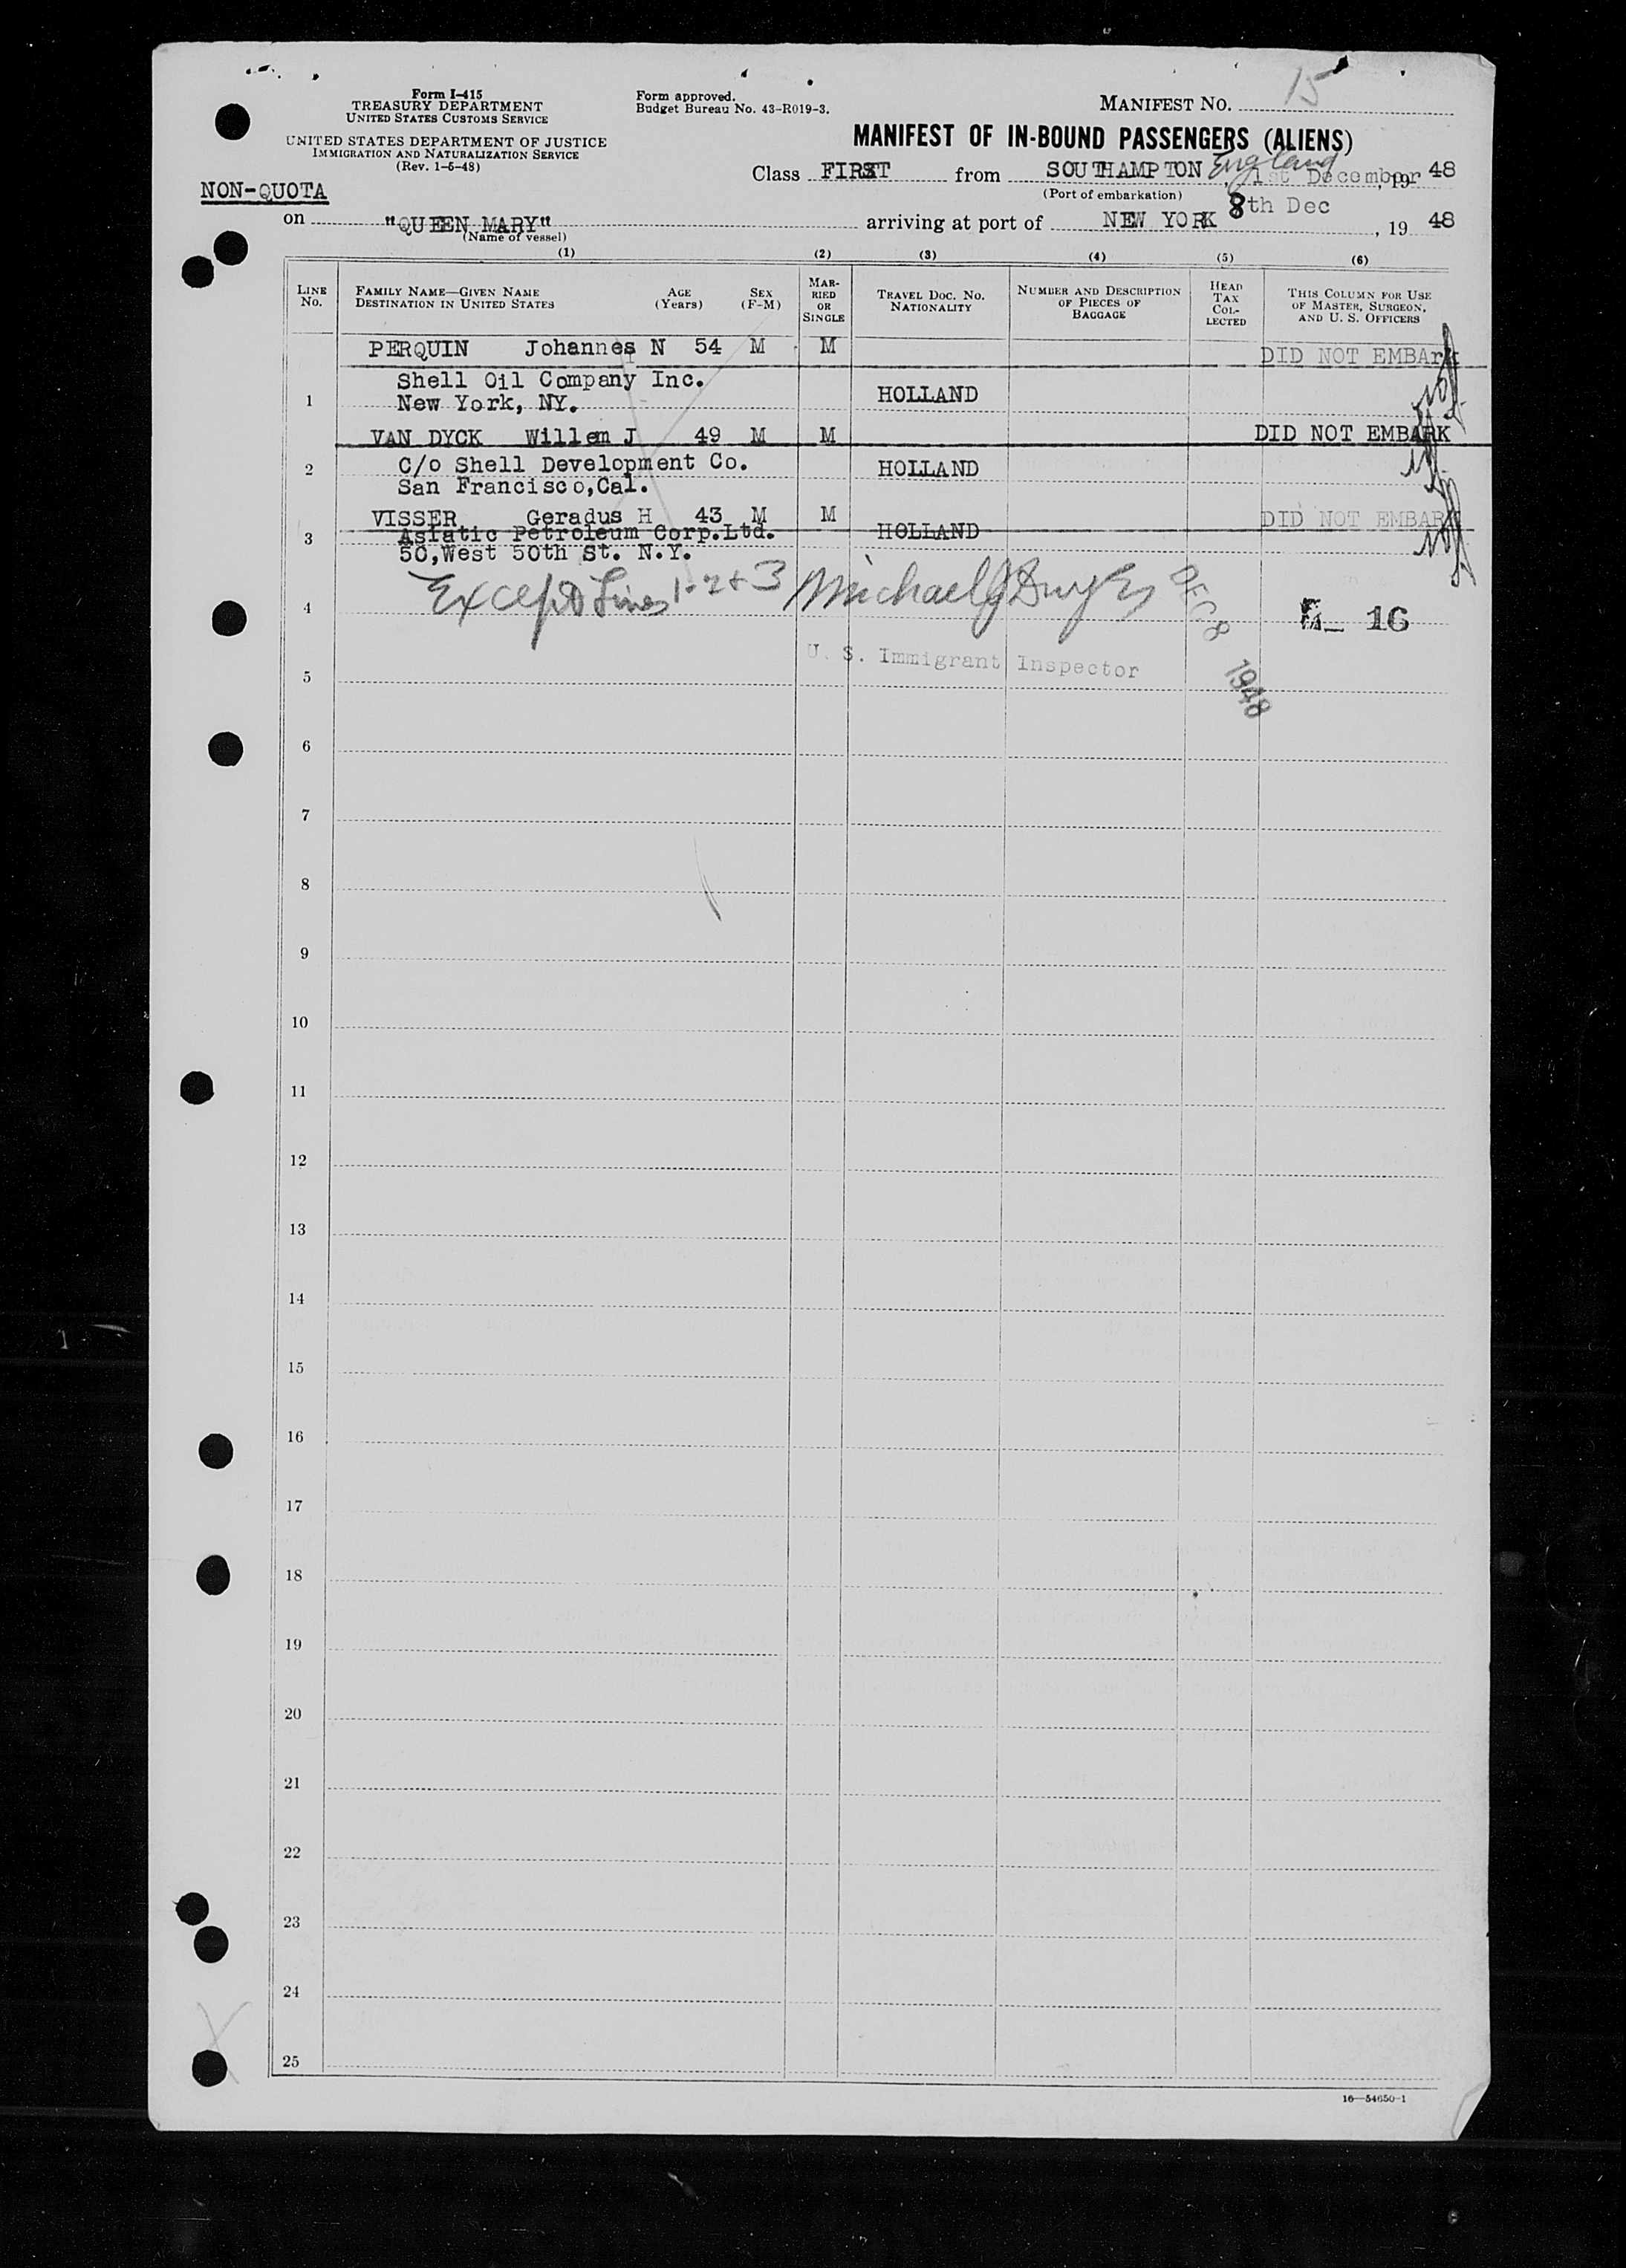 Form I-415
TREASURY DEPARTMENT
UNITED STATES CUSTOMS SERVICE
UNITED STATES DEPARTMENT OF JUSTICE
IMMIGRATION AND NATURALIZATION SERVICE
(Rev. 1-5-48)
Form approved.
Budget Bureau No. 43-R019-3.
MANIFEST NO. 15
MANIFEST OF IN-BOUND PASSENGERS (ALIENS)
NON-QUOTA
Class FIRST from SOUTHAMPTON England 1st December, 19 48
(Port of embarkation)
on "QUEEN MARY" arriving at port of NEW YORK 8th Dec, 19 48
(Name of vessel)
(1) (2) (3) (4) (5) (6)
LINE No. FAMILY NAME—GIVEN NAME DESTINATION IN UNITED STATES AGE (Years) SEX (F-M) MARRIED OR SINGLE TRAVEL DOC. NO. NATIONALITY NUMBER AND DESCRIPTION OF PIECES OF BAGGAGE HEAD TAX COLLECTED THIS COLUMN FOR USE OF MASTER, SURGEON, AND U. S. OFFICERS
PERQUIN Johannes N 54 M M DID NOT EMBArk
Shell Oil Company Inc.
1 New York, NY. HOLLAND
VAN DYCK Willem J 49 M M DID NOT EMBARK
2 C/o Shell Development Co. HOLLAND
San Francisco,Cal.
VISSER Geradus H 43 M M DID NOT EMBARK
3 Asiatic Petroleum Corp.Ltd. HOLLAND
50,West 50th St. N.Y.
4 Except Lines 1-2+3 Michael J Dwyer DEC 8 1948 16
U. S. Immigrant Inspector
5
6
7
8
9
10
11
12
13
14
15
16
17
18
19
20
21
22
23
24
25
16—54650-1